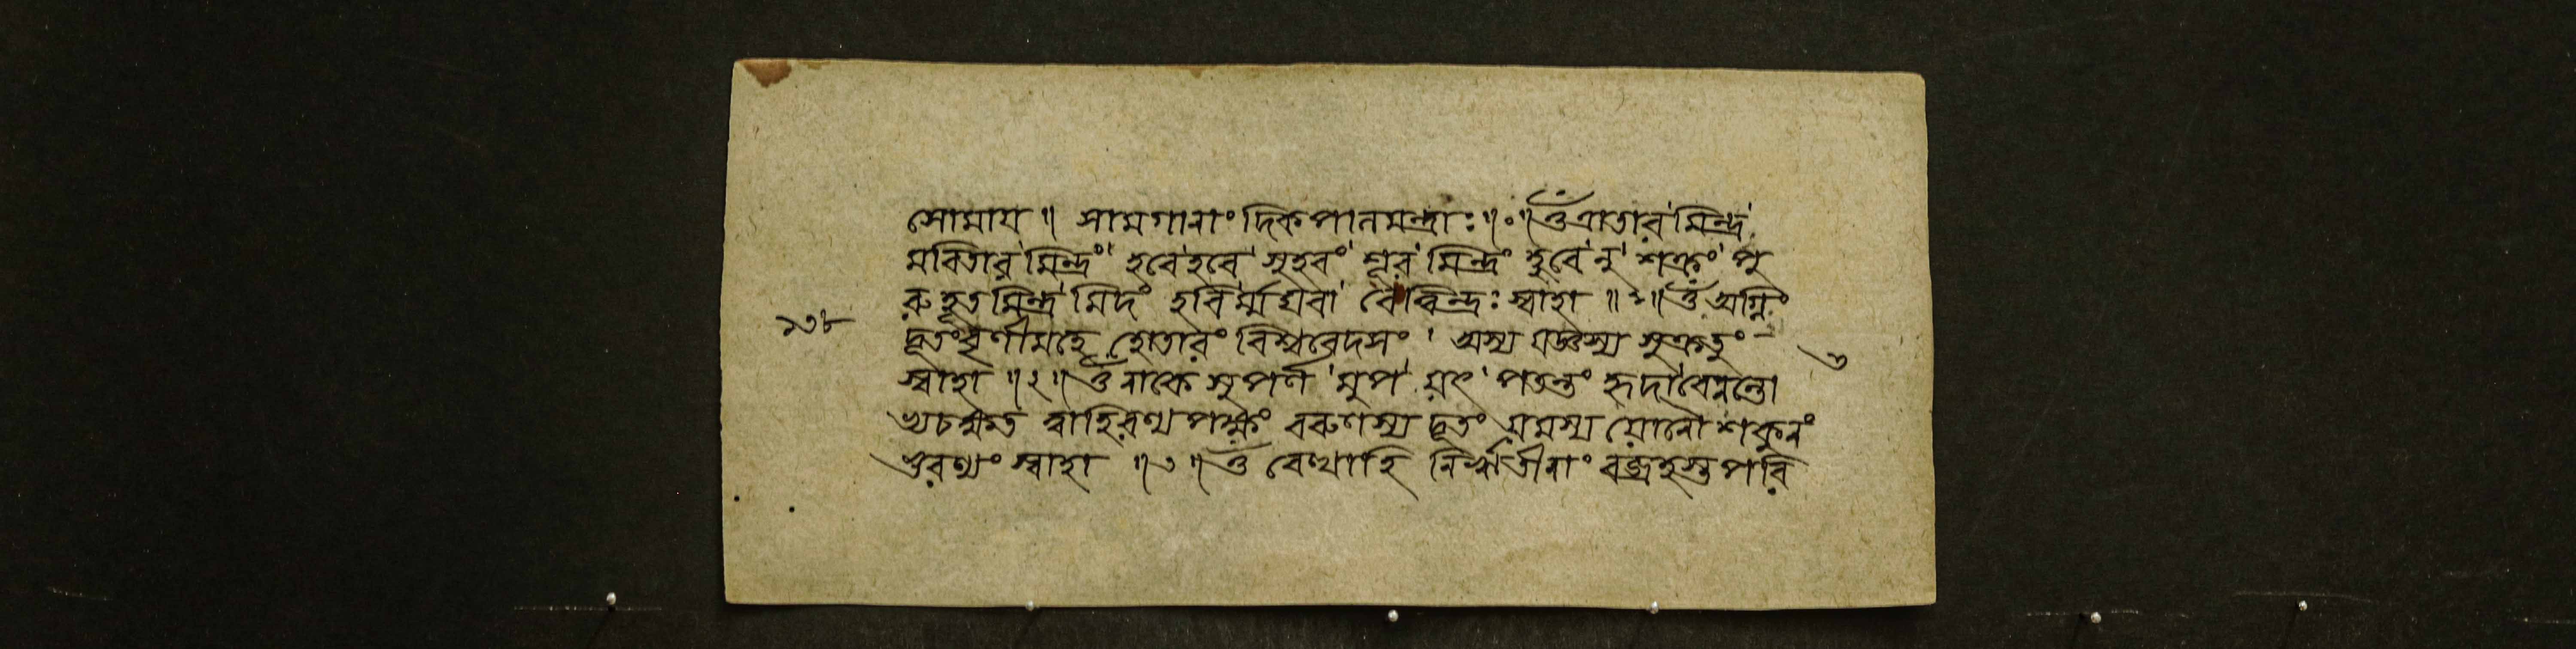 সোমায ॥ সামগানাং দিকপালমন্ত্রাঃ ॥০॥ ওঁ ত্রাতারমিন্দ্র
মবিতারমিন্দ্রং হবেহবে সুহবং শূরমিন্দ্রং হুবে নু শক্রং পু
রুহূতমিন্দ্রমিদং হবির্ম্মঘবা বেত্বিন্দ্রঃ স্বাহা ॥১॥ ওঁ অগ্নিং
দূতং বৃণীমহে হোতারং বিশ্ববেদসং অস্য যজ্ঞস্য সুক্রতুং
স্বাহা ॥২॥ ওঁ নাকে সুপর্ণমুপ যৎ পতন্তং হৃদা বেনন্তো
ভ্যচক্ষত ত্বা হিরণ্যপক্ষং বরুণস্য দূতং যমস্য যোনৌ শকুনং
ভুরণ্যং স্বাহা ॥৩॥ ওঁ বেত্থা হি নির্ঋতীনাং বজ্রহস্ত পরি